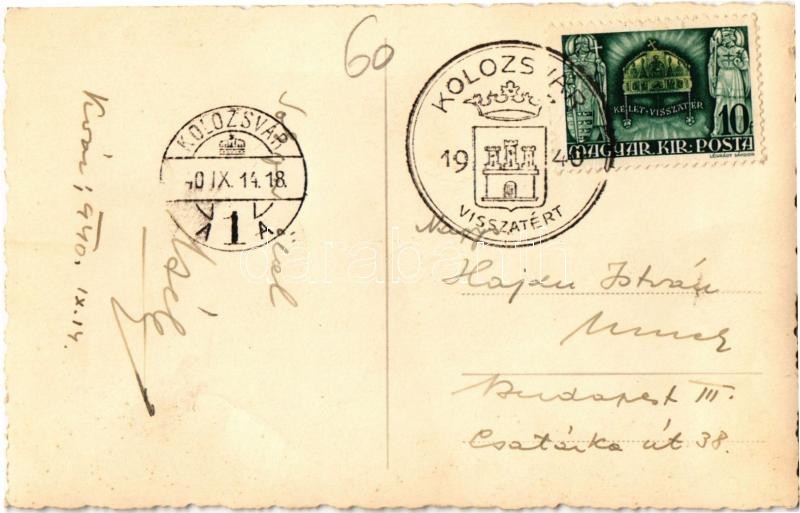 60
KOLOZSVÁR
1940
VISSZATÉRT
KELET-VISSZATÉR
10
MAGYAR·KIR·POSTA
LÉGRÁDY SÁNDOR
KOLOZSVÁR
40 IX. 14. 18.
A 1 A
1940. IX. 14.
darabanth
Nagys.
Hajdu István
Budapest III.
Csatárka út 38.